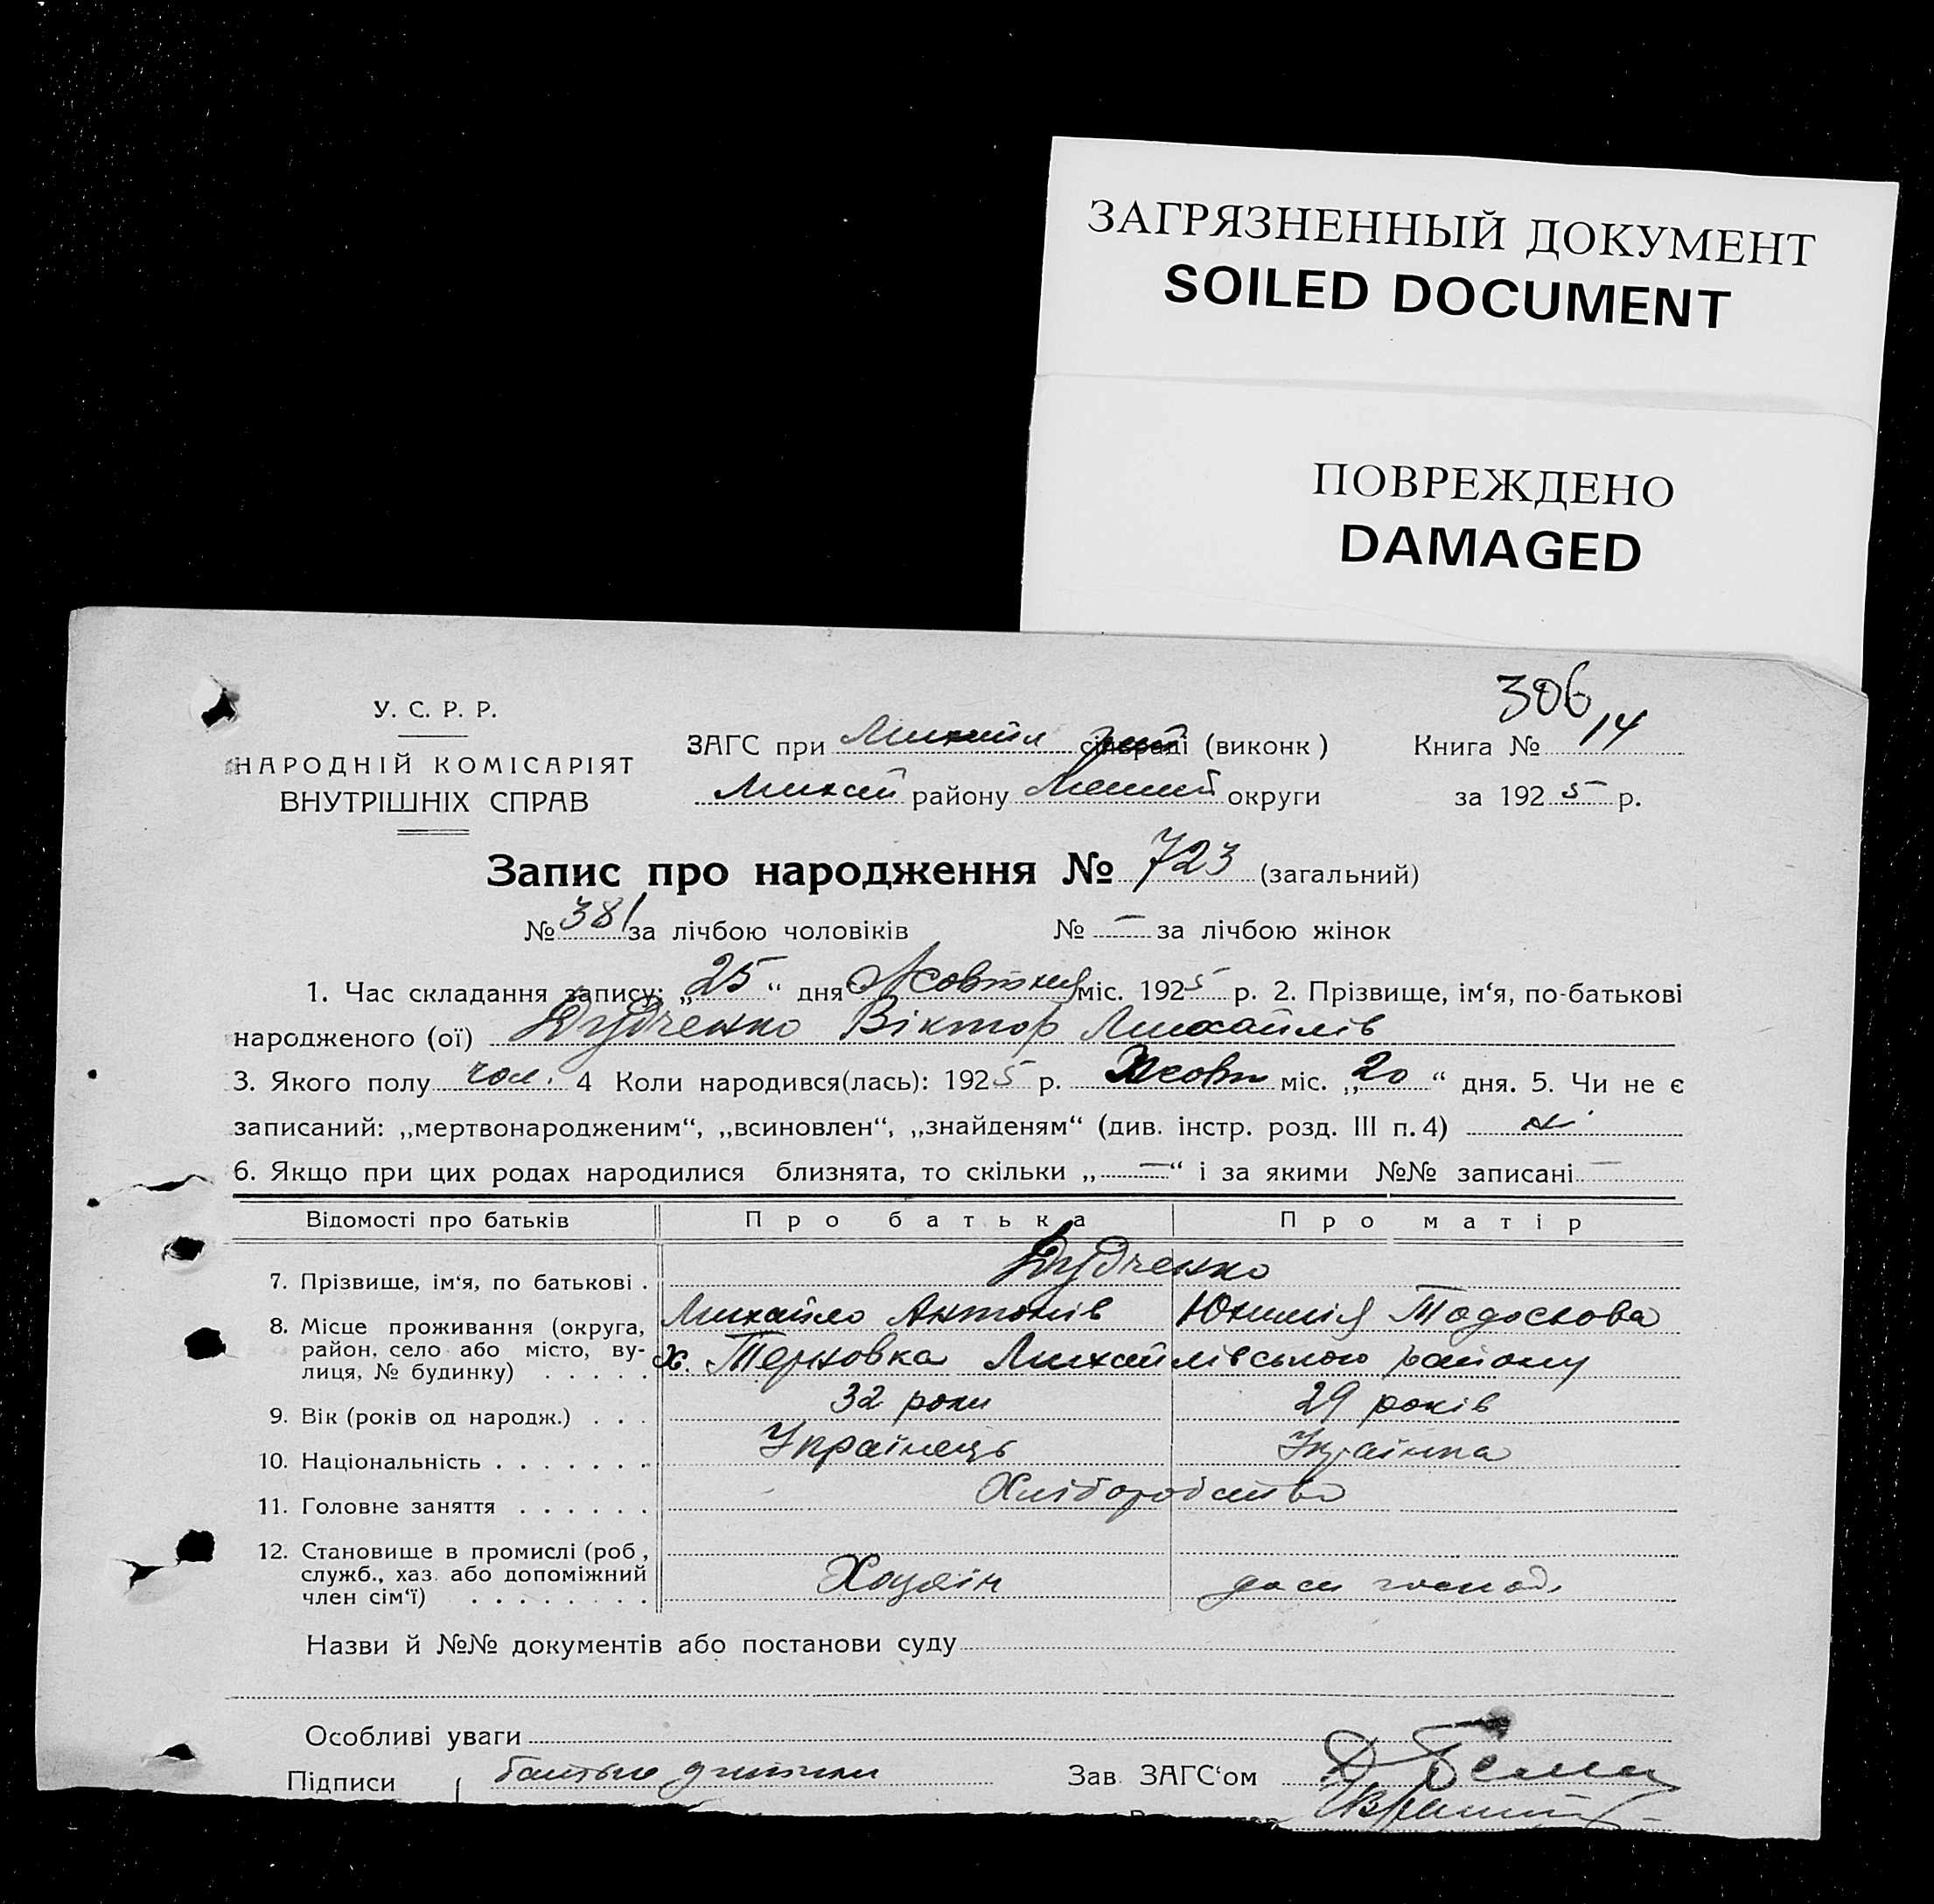 ЗАГРЯЗНЕННЫЙ ДОКУМЕНТ
SOILED DOCUMENT
ПОВРЕЖДЕНО
DAMAGED
306
У. С. Р. Р.
НАРОДНІЙ КОМІСАРІЯТ
ВНУТРІШНІХ СПРАВ
ЗАГС при Михайл сільраді (виконк)
Михай району округи
Книга № 14
за 1925 р.
Запис про народження № 723 (загальний)
№ 381 за лічбою чоловіків № — за лічбою жінок
1. Час складання запису: „25“ дня Жовтня міс. 1925 р. 2. Прізвище, ім‘я, по-батькові
народженого (ої) Дудченко Віктор Михайлів
3. Якого полу чол. 4 Коли народився(лась): 1925 р. Жовт міс. „20“ дня. 5. Чи не є
записаний: „мертвонародженим“, „всиновлен“, „знайденям“ (див. інстр. розд. III п. 4) ні
6. Якщо при цих родах народилися близнята, то скільки „—“ і за якими №№ записані —
Відомості про батьків Про батька Про матір
7. Прізвище, ім‘я, по батькові . Дудченко
Михайло Антонів Юхимія Тодоскова
8. Місце проживання (округа,
район, село або місто, ву-
лиця, № будинку) . . . . .
х. Терновка Михайлівського району
9. Вік (років од народж.) . . . 32 роки 29 років
10. Національність . . . . . . . Українець Українка
11. Головне заняття . . . . . . Хліборобство
12. Становище в промислі (роб,
служб., хаз. або допоміжний
член сім‘ї) . . . . . . . .
Хазяін дом господ.
Назви й №№ документів або постанови суду
Особливі уваги
Підписи батько
Зав. ЗАГС‘ом